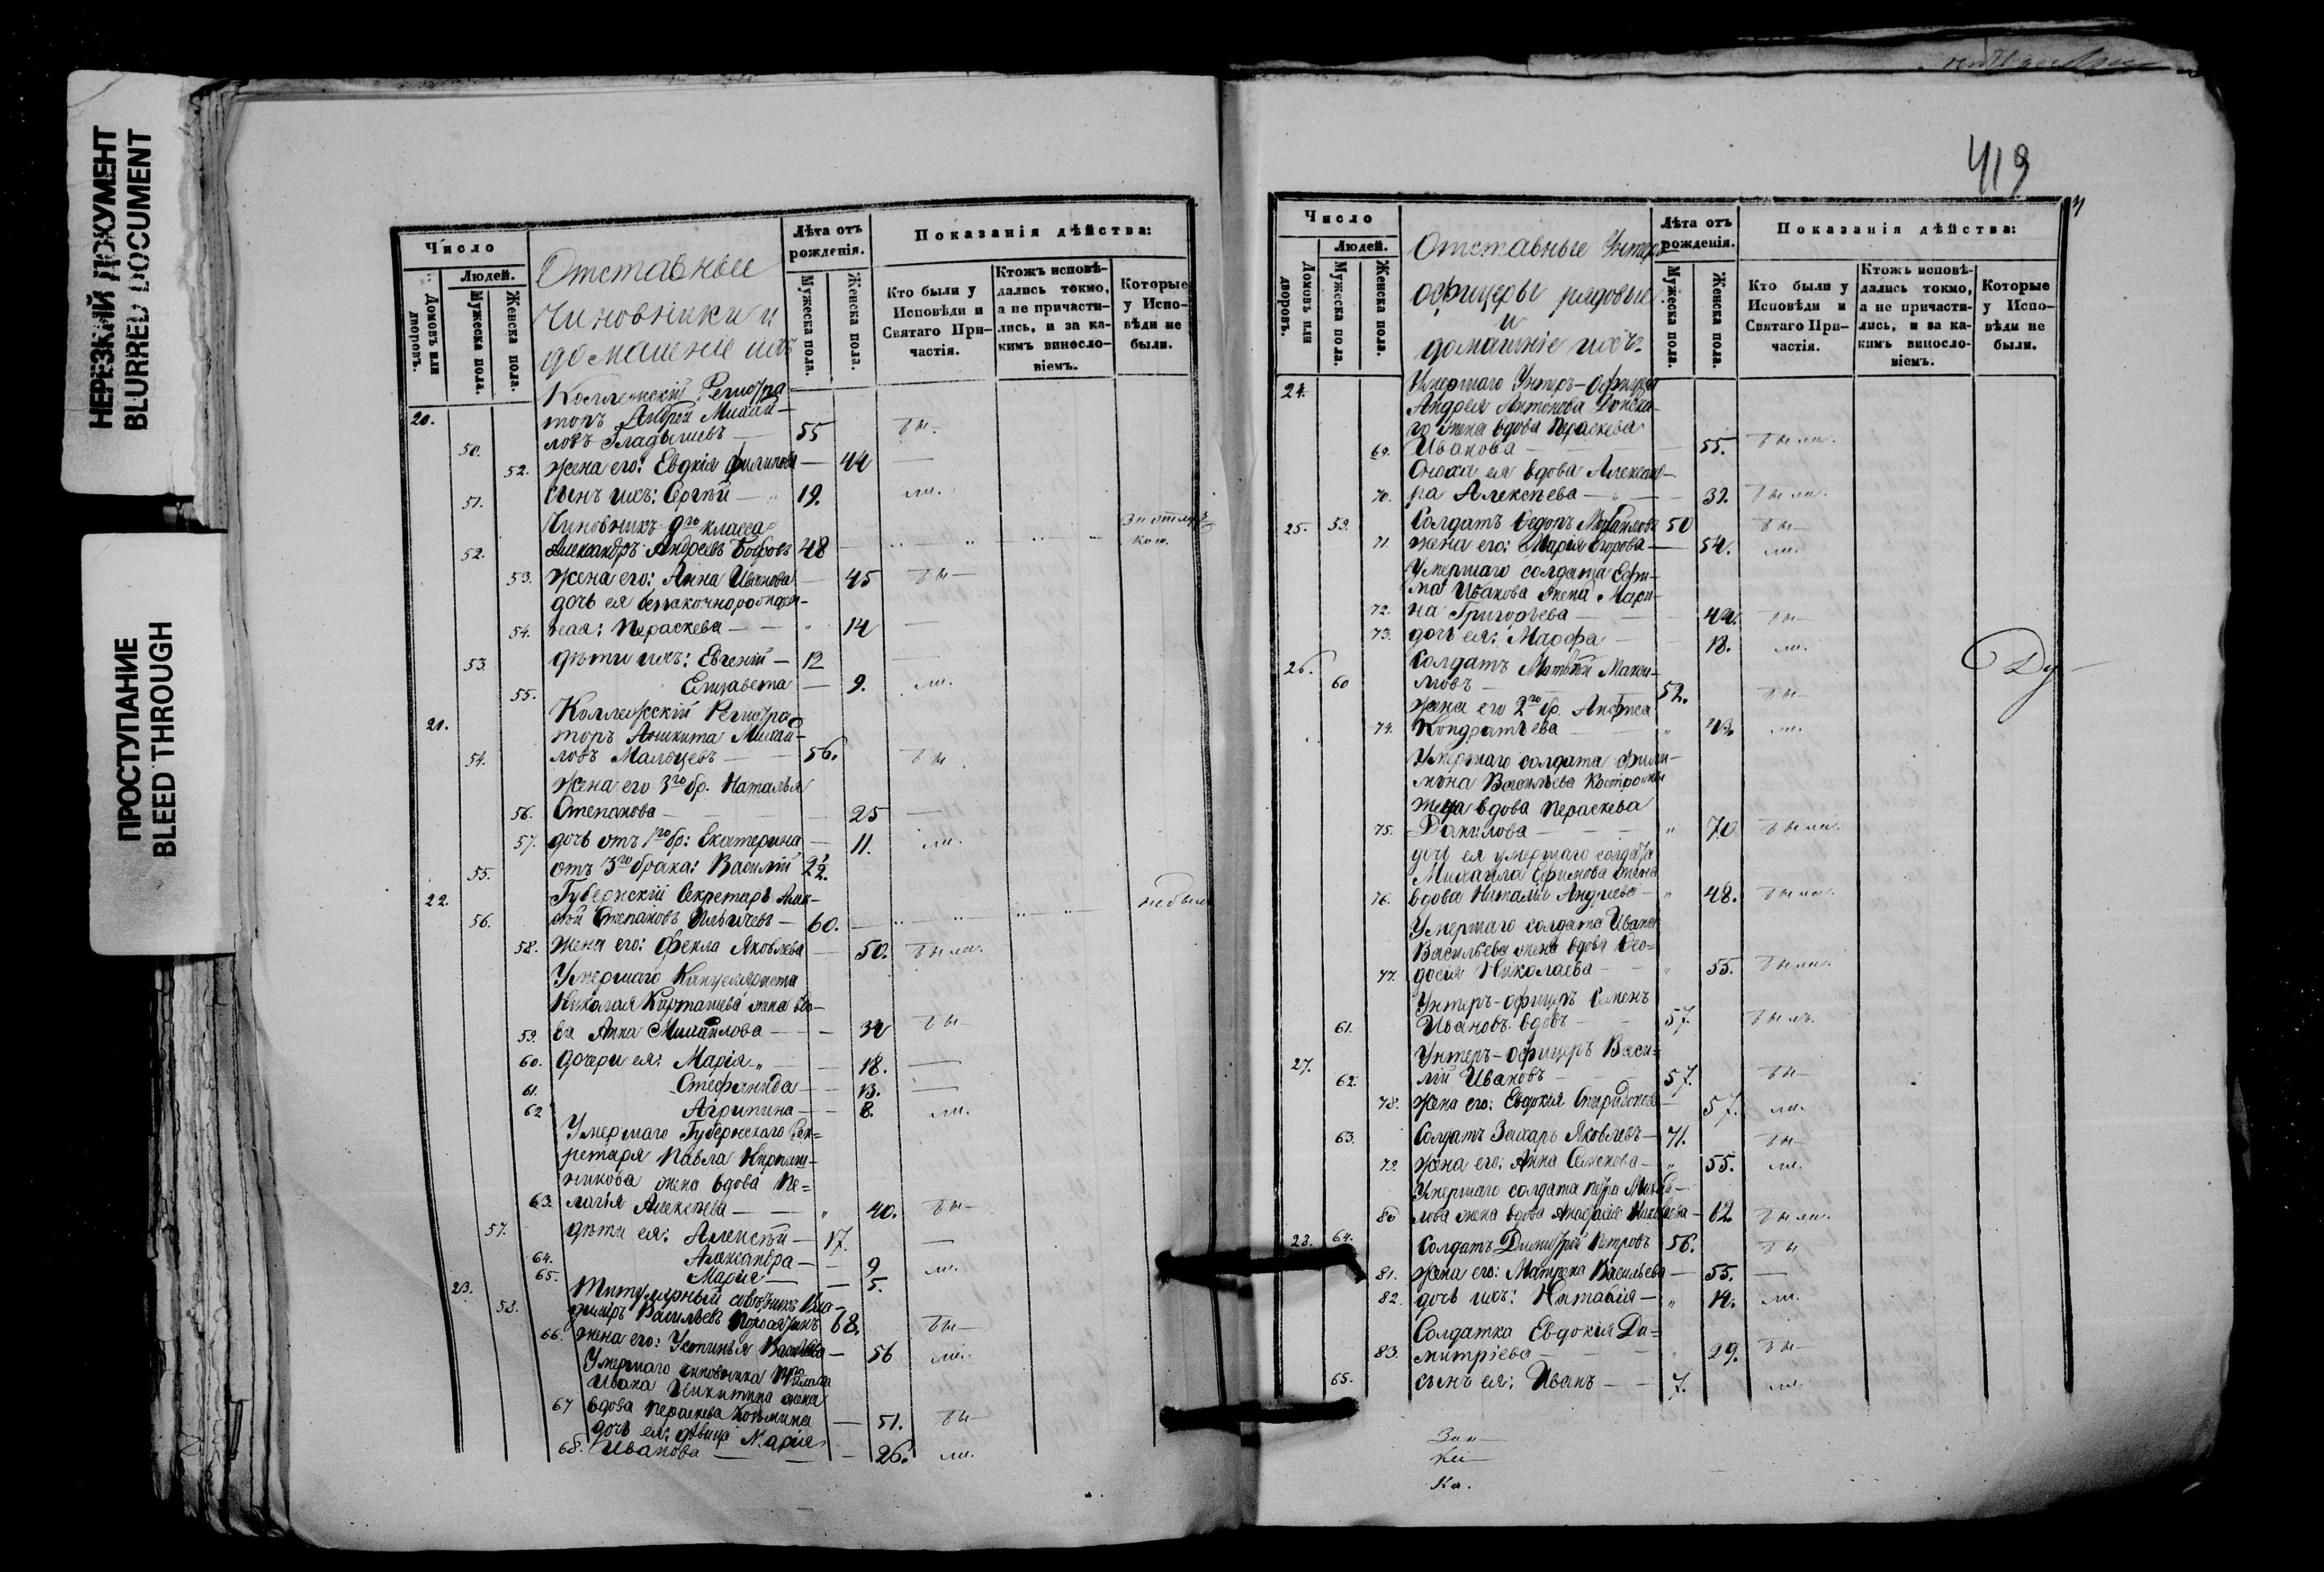 НЕРЕЗКИЙ ДОКУМЕНТ
BLURRED DOCUMENT
ПРОСТУПАНИЕ
BLEED THROUGH
Число
Людей.
Домовъ или дворовъ.
Мужеска пола.
Женска пола.
Отставные
Чиновники и
домашние ихъ
Лѣта отъ рожденія.
Мужеска пола.
Женска пола.
Показанія дѣйства:
Кто были у Исповѣди и Святаго Причастія.
Ктожъ исповѣдались токмо, а не причастились, и за какимъ винословіемъ.
Которые у Исповѣди не были.
Коллежскій Регистра-
20. торъ Андрей Михай-
50. ловъ Гладышевъ — 55 бы-
52. жена его: Евдкія Филипова — 44 —
51. сынъ ихъ: Сергѣй — 19. ли.
Чиновникъ 9го класса
52. Александръ Андреевъ Бобровъ 48
53. жена его: Анна Иванова — 45 бы-
дочь ея беззаконнорожден-
54. ная: Пераскева — 14 —
53. дѣти ихъ: Евгеній — 12 —
55. Елизавета — 9. ли.
Коллежскій Регистра
21. торъ Аникита Михай-
54. ловъ Мальцевъ — 56. бы
жена его 3го бр. Наталья
56. Степанова — 25 —
57. дочь отъ 1го бр: Екатерина — 11. ли.
55. отъ 3го брака: Василій 2½.
22. Губернскій Секретарь Алек-
56. сѣй Степановъ — 60. не былъ
58. жена его: Фекла Яковлева — 50. были.
Умершаго Канцеляриста
Николая Карташева жена вдо-
59. ва Анна Михайлова — 34 бы
60. дочери ея: Марія — 18. —
61. Стефанида — 13. —
62 Агрипина — 8. ли.
Умершаго Губернскаго Сек=
ретаря Павла
жена вдова Пе=
63. лагія Алексѣева — 40. бы-
57. дѣти ея: Алексѣй — 17. —
64. Александра — 9 ли.
65. Марія — 5.
23. Титулярный совѣтникъ Вла-
58. диміръ Васильевъ 68. бы-
66. жена его: Устинья — 56 ли.
Умершаго чиновника 14го класса
Ивана Никитина жена
67 вдова Пераскева Козьмина — 51. бы-
дочь ея: дѣвица Марія
68. Иванова — 26. ли.
419
Число
Людей.
Домовъ или дворовъ.
Мужеска пола.
Женска пола.
Отставные Унтеръ
офицеры рядовые
и
домашніе ихъ.
Лѣта отъ рожденія.
Мужеска пола.
Женска пола.
Показанія дѣйства:
Кто были у Исповѣди и Святаго Причастія.
Ктожъ исповѣдались токмо, а не причастились, и за какимъ винословіемъ.
Которые у Исповѣди не были.
24. Умершаго Унтеръ-Офицера
Андрея Антонова Донска-
го жена вдова Пераскева
69. Иванова — 55. были.
Сноха ея вдова Александ-
70. ра Алексѣева — 39. были.
25. 59. Солдатъ Ѳедоръ Михайловъ 50 бы-
71. жена его: Марія Егорова — 54. ли.
Умершаго солдата Ефи-
ма Иванова жена Мари-
72. на Григорьева — 44. бы-
73. дочь ея: Марфа — 18. ли.
26. Солдатъ Матвѣй Макси-
60 мовъ — 52. бы-
жена его 2го бр. Анфиса
74. Кондратьева — 43. ли.
Умершаго солдата Фили-
мона Васильева Костромы
жена вдова Пераскева
75. Данилова — 70 были.
дочь ея умершаго солдата
Михаила Ефимова жена
76. вдова Наталія Андреева — 48. были.
Умершаго солдата Ивана
Васильева жена вдова Ѳео=
77. досія Николаева — 55. были.
Унтеръ-офицеръ Семенъ
61. Ивановъ вдовъ — 57. былъ.
27. Унтеръ-офицеръ Васи=
62. лій Ивановъ — 57. бы-
78. жена его: Евдокія Спиридонова — 57. ли.
63. Солдатъ Захаръ Яковлевъ — 71. бы-
79. жена его: Анна Семенова — 55. ли.
Умершаго солдата Петра Михай-
80 лова жена вдова Анастасія — 62. были.
28. 64. Солдатъ Димитрій Петровъ 56. бы
81. жена его: Матрена Васильева — 55. —
82. дочь ихъ: Наталія — 14. ли.
Солдатка Евдокія Ди=
83. митріева — 29. бы-
65. сынъ ея: Иванъ — 7. ли.